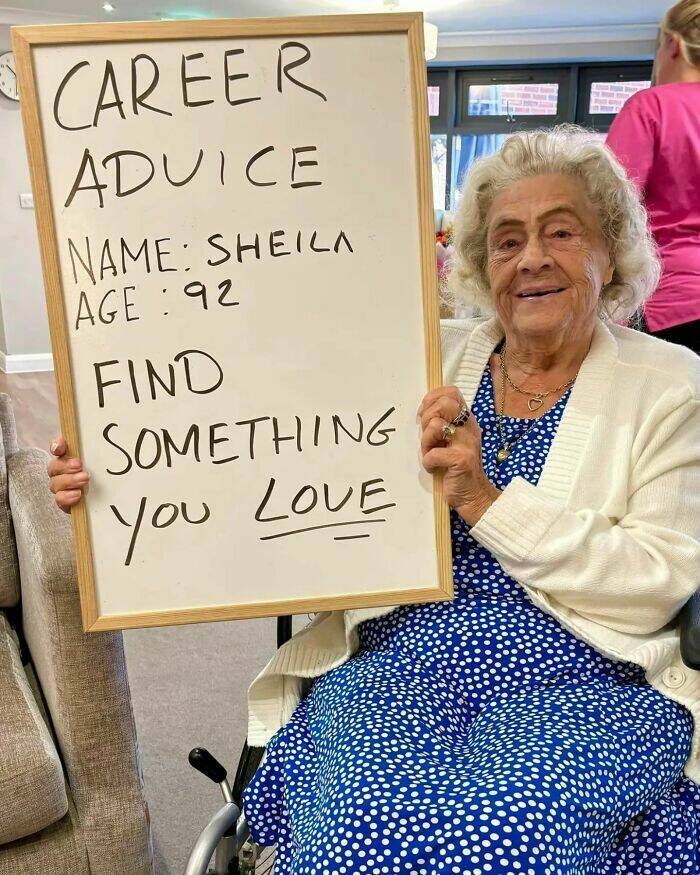 CAREER
ADVICE
NAME: SHEILA
AGE : 92
FIND
SOMETHING
YOU LOVE